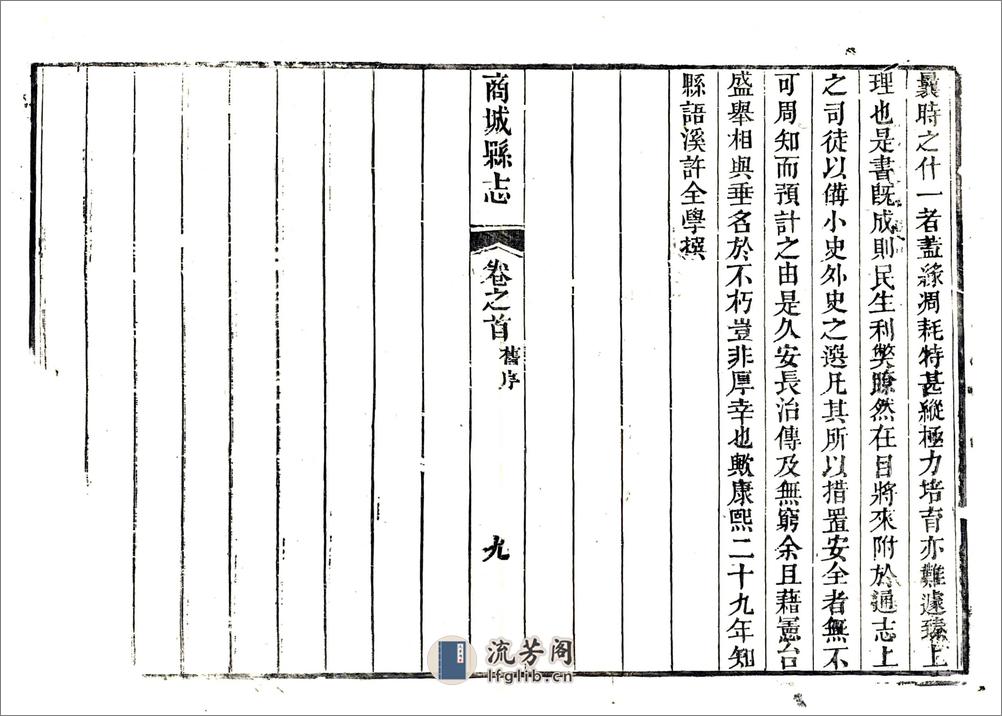 曩時之什一者蓋緣凋耗特甚縱極力培育亦難遽臻上
理也是書既成則民生利獘瞭然在目將來附於通志上
之司徒以備小史外史之選凡其所以措置安全者無不
可周知而預計之由是久安長治傳及無窮余且藉憲台
盛舉相與垂名於不朽豈非厚幸也歟康熙二十九年知
縣語溪許全學撰
商城縣志
卷之首
舊序
九
流芳阁
lfglib.cn